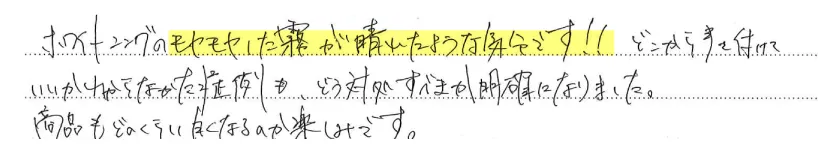 ホワイトニングのモヤモヤした霧が晴れたような気分です!! どこから手を付けて
いいかわからなかった症例も、どう対処すべきか明確になりました。
商品もどのくらい白くなるのか楽しみです。